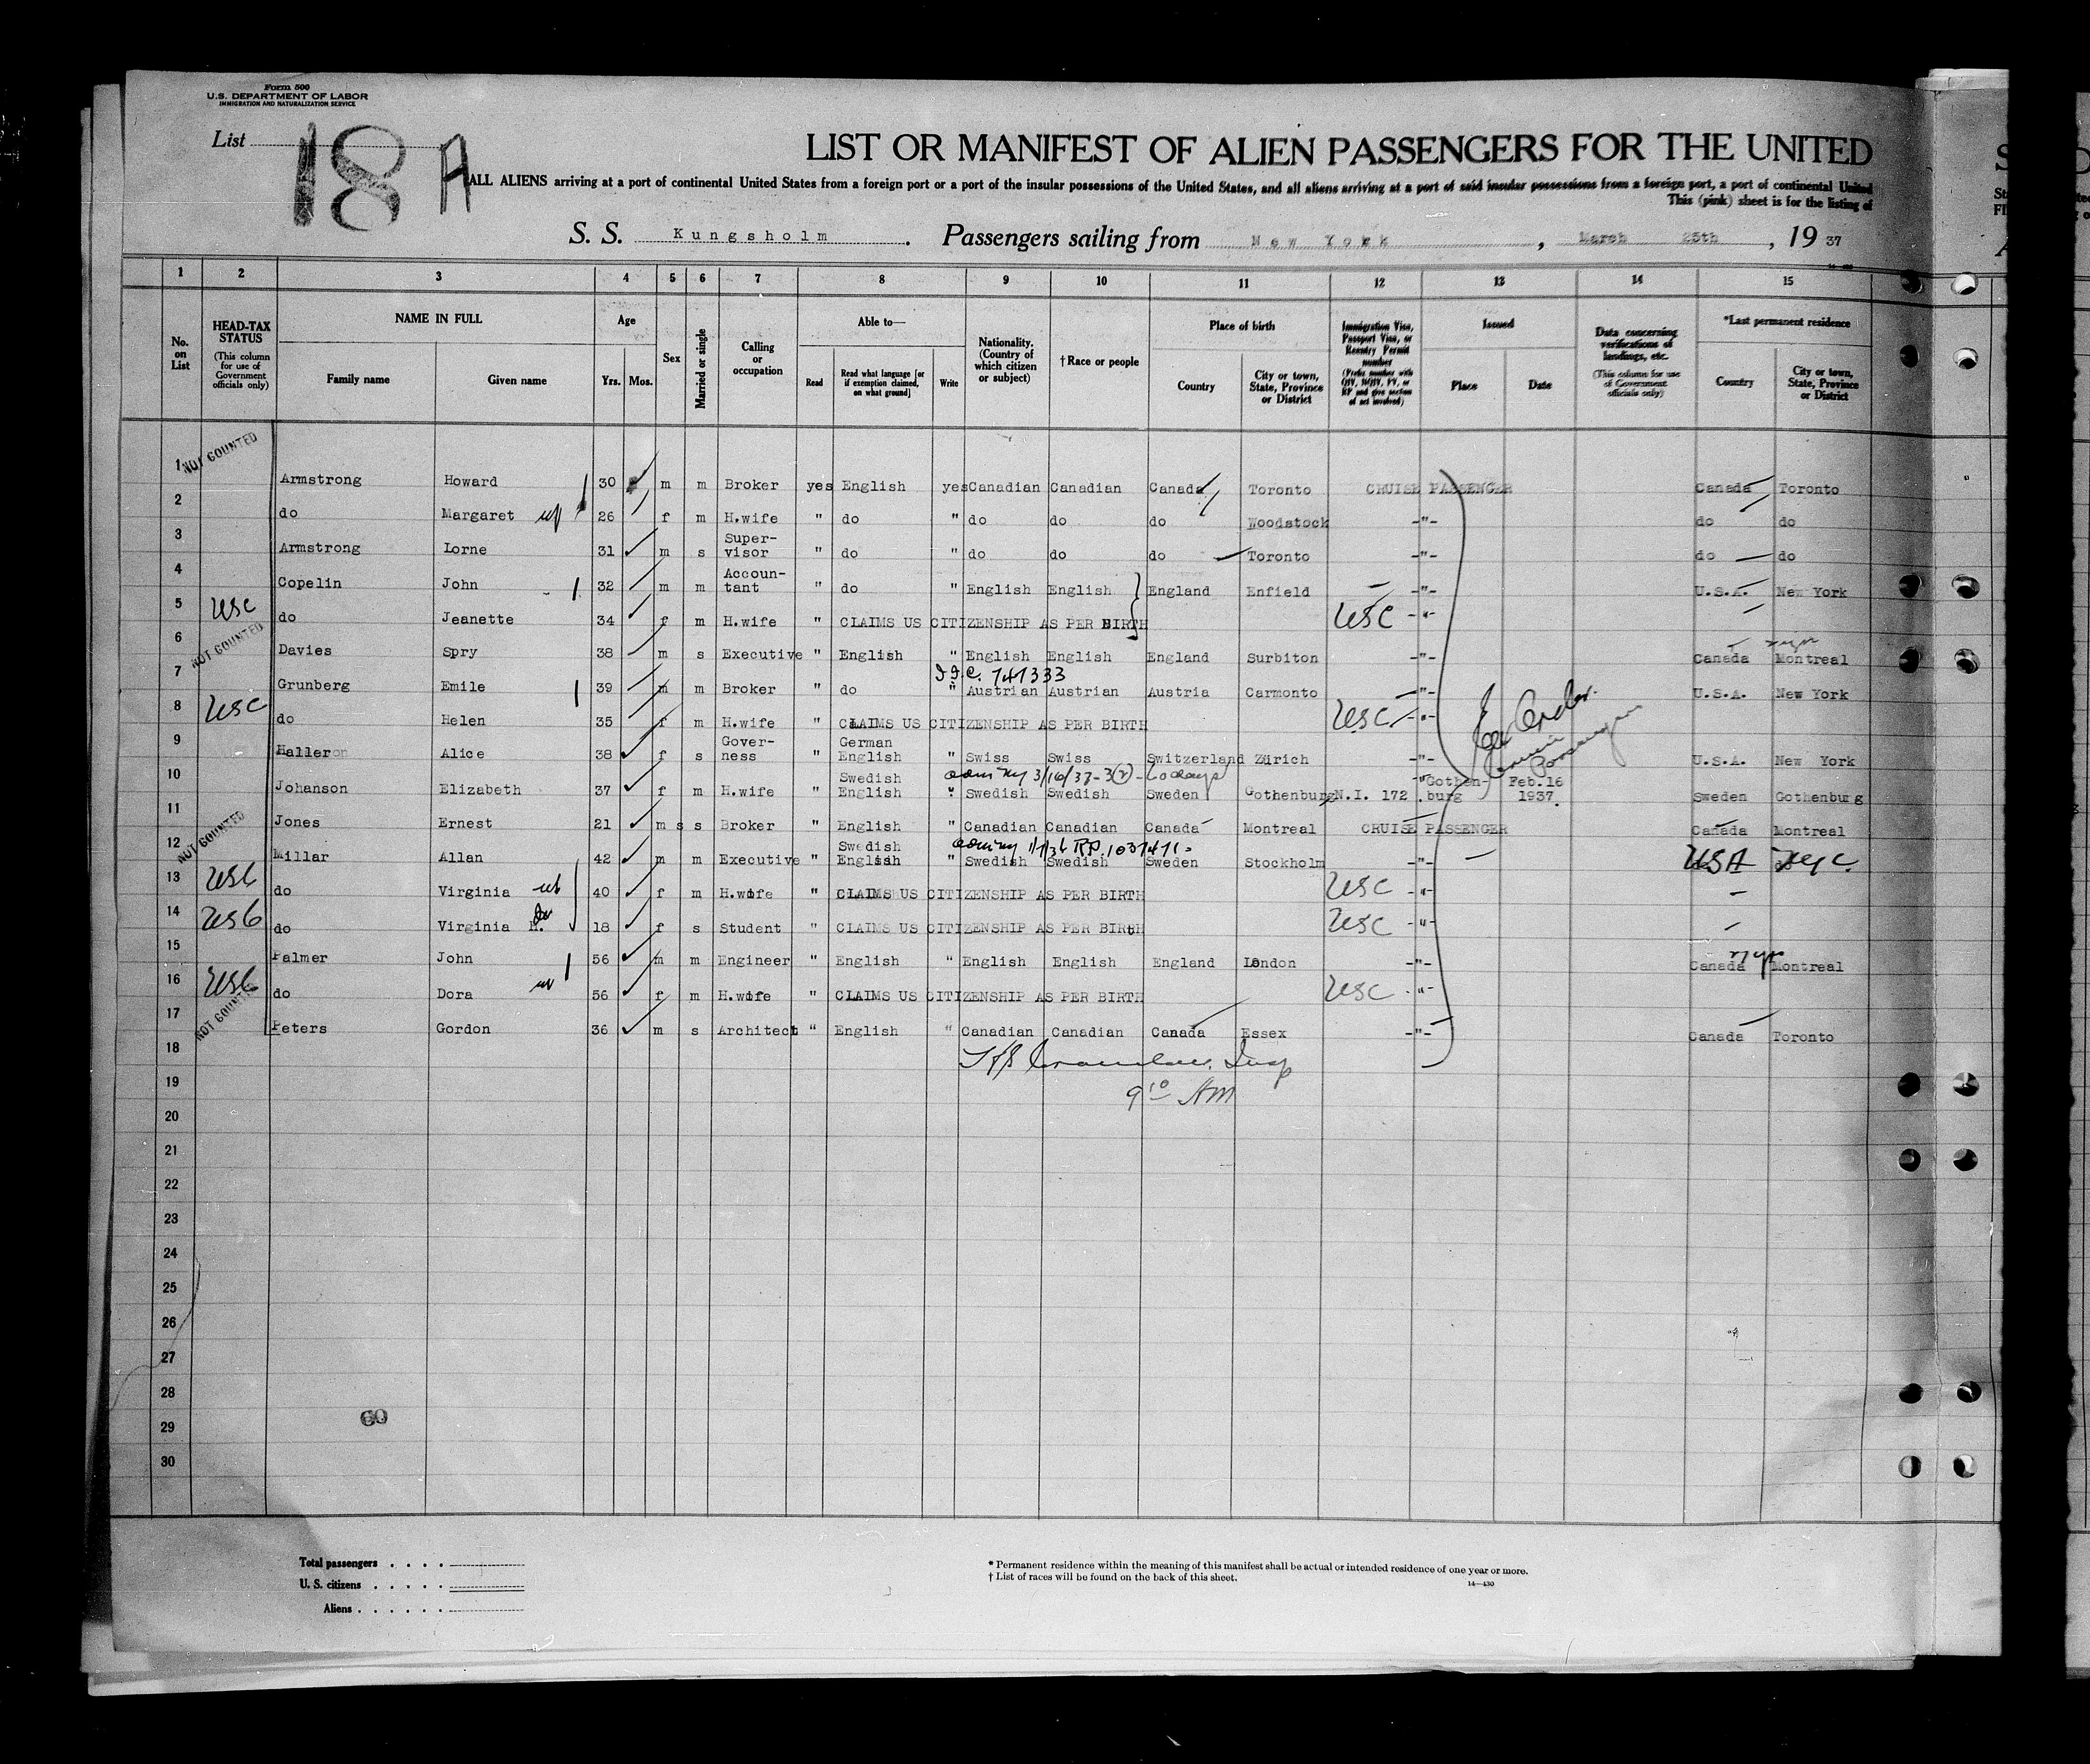 Form 500
U.S. DEPARTMENT OF LABOR
IMMIGRATION AND NATURALIZATION SERVICE
List 18 A
LIST OR MANIFEST OF ALIEN PASSENGERS FOR THE UNITED
ALL ALIENS arriving at a port of continental United States from a foreign port or a port of the insular possessions of the United States, and all aliens arriving at a port of said insular possessions from a foreign port, a port of continental United
This (pink) sheet is for the listing of
S. S. Kungsholm. Passengers sailing from New York, March 25th, 19 37
1 2 3 4 5 6 7 8 9 10 11 12 13 14 15
No. on List
HEAD-TAX STATUS (This column for use of Government officials only)
NAME IN FULL Family name Given name
Age Yrs. Mos.
Sex
Married or single
Calling or occupation
Able to— Read Read what language [or if exemption claimed, on what ground] Write
Nationality. (Country of which citizen or subject)
†Race or people
Place of birth Country City or town, State, Province or District
Immigration Visa, Passport Visa, or Reentry Permit number (Prefix number with QIV, NQIV, PV, or RP and give section of act involved)
Issued Place Date
Data concerning verifications of landings, etc. (This column for use of Government officials only)
*Last permanent residence Country City or town, State, Province or District
1 NOT COUNTED Armstrong Howard 30 m m Broker yes English yes Canadian Canadian Canada Toronto CRUISE PASSENGER Canada Toronto
2 do Margaret 26 f m H.wife " do " do do do Woodstock -"- do do
3 Armstrong Lorne 31 m s Super-visor " do " do do do Toronto -"- do do
4 Copelin John 32 m m Accoun-tant " do " English English England Enfield -"- U.S.A. New York
5 USC do Jeanette 34 f m H.wife " CLAIMS US CITIZENSHIP AS PER BIRTH USC -"-
6 NOT COUNTED Davies Spry 38 m s Executive " English " English English England Surbiton -"- Canada Montreal
741333
7 Grunberg Emile 39 m m Broker " do " Austrian Austrian Austria Carmonto -"- U.S.A. New York
8 USC do Helen 35 f m H.wife " CLAIMS US CITIZENSHIP AS PER BIRTH USC -"-
9 Halleron Alice 38 f s Gover-ness " German English " Swiss Swiss Switzerland Zürich -"- U.S.A. New York
3/16/37-3(2)-60 days
10 Johanson Elizabeth 37 f m H.wife " Swedish English " Swedish Swedish Sweden Gothenburg N.I. 172 Gothen-burg Feb.16 1937. Sweden Gothenburg
11 Jones Ernest 21 m s s Broker " English " Canadian Canadian Canada Montreal CRUISE PASSENGER Canada Montreal
RP. 1037411
12 NOT COUNTED Millar Allan 42 m m Executive " Swedish English " Swedish Swedish Sweden Stockholm -"- USA NYC.
13 USC do Virginia 40 f m H.wife " CLAIMS US CITIZENSHIP AS PER BIRTH USC -"-
14 USC do Virginia H. 18 f s Student " CLAIMS US CITIZENSHIP AS PER BIRTH USC -"-
15 Palmer John 56 m m Engineer " English " English English England London -"- Canada Montreal
16 USC do Dora 56 f m H.wife " CLAIMS US CITIZENSHIP AS PER BIRTH USC -"-
17 NOT COUNTED Peters Gordon 36 m s Architect " English " Canadian Canadian Canada Essex -"- Canada Toronto
18
19 9 10 AM
20
21
22
23
24
25
26
27
28
29
30
60
Total passengers
U. S. citizens
Aliens
* Permanent residence within the meaning of this manifest shall be actual or intended residence of one year or more.
† List of races will be found on the back of this sheet.
14—430